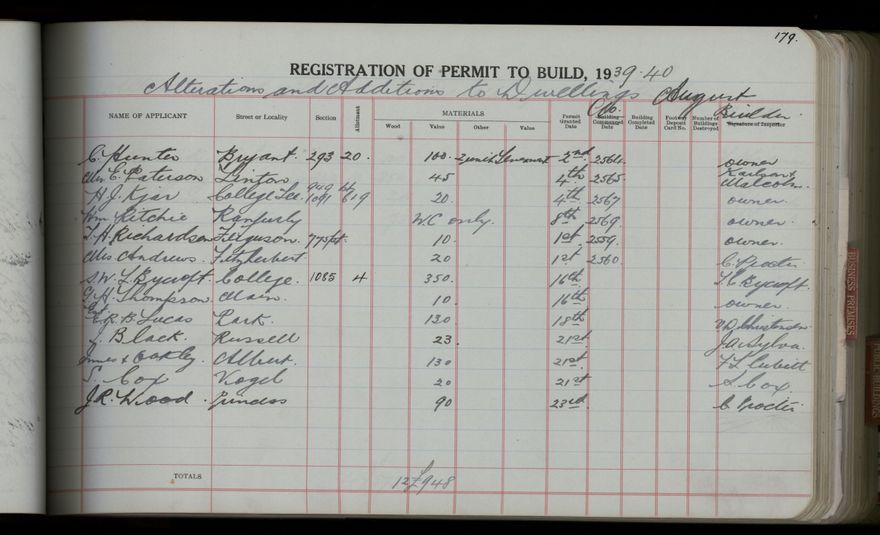 179.
REGISTRATION OF PERMIT TO BUILD, 1939-40
Alterations and Additions to Dwellings August
NAME OF APPLICANT Street or Locality Section Allotment MATERIALS Wood Value Other Value Permit Granted Date No. Building Commenced Date Building Completed Date Footway Deposit Card No. Number of Buildings Destroyed Builder Signature of Inspector
C. Hunter Bryant. 293 20. 100. 2nd 2564. owner
Mrs E. Paterson Linton 45 4th 2565. Malcolm.
H. J. Kjar College 1091 619 20. 4th 2567 owner.
Wm Ritchie Ranfurly W.C only. 8th 2569. owner.
T. H. Richardson Ferguson. 775 10. 1st 2559. owner.
Mrs Andrews. Fitzherbert 20 1st 2560. C. Procter
S. W. L. Rycroft. College. 1085 4 350. 16th T. C. Rycroft.
G. A. Thompson Main. 10. 16th owner.
E. R. B. Lucas Park. 130 18th
J. Black. Russell 23. 21st J. A. Sylva.
Innes & Oakley. Albert. 130 21st F. L. Cubitt
S. Cox Vogel 20 21st S. Cox
J. R. Wood. Princess 90 23rd C. Procter
TOTALS 12 £948
BUSINESS PREMISES
PUBLIC BUILDINGS